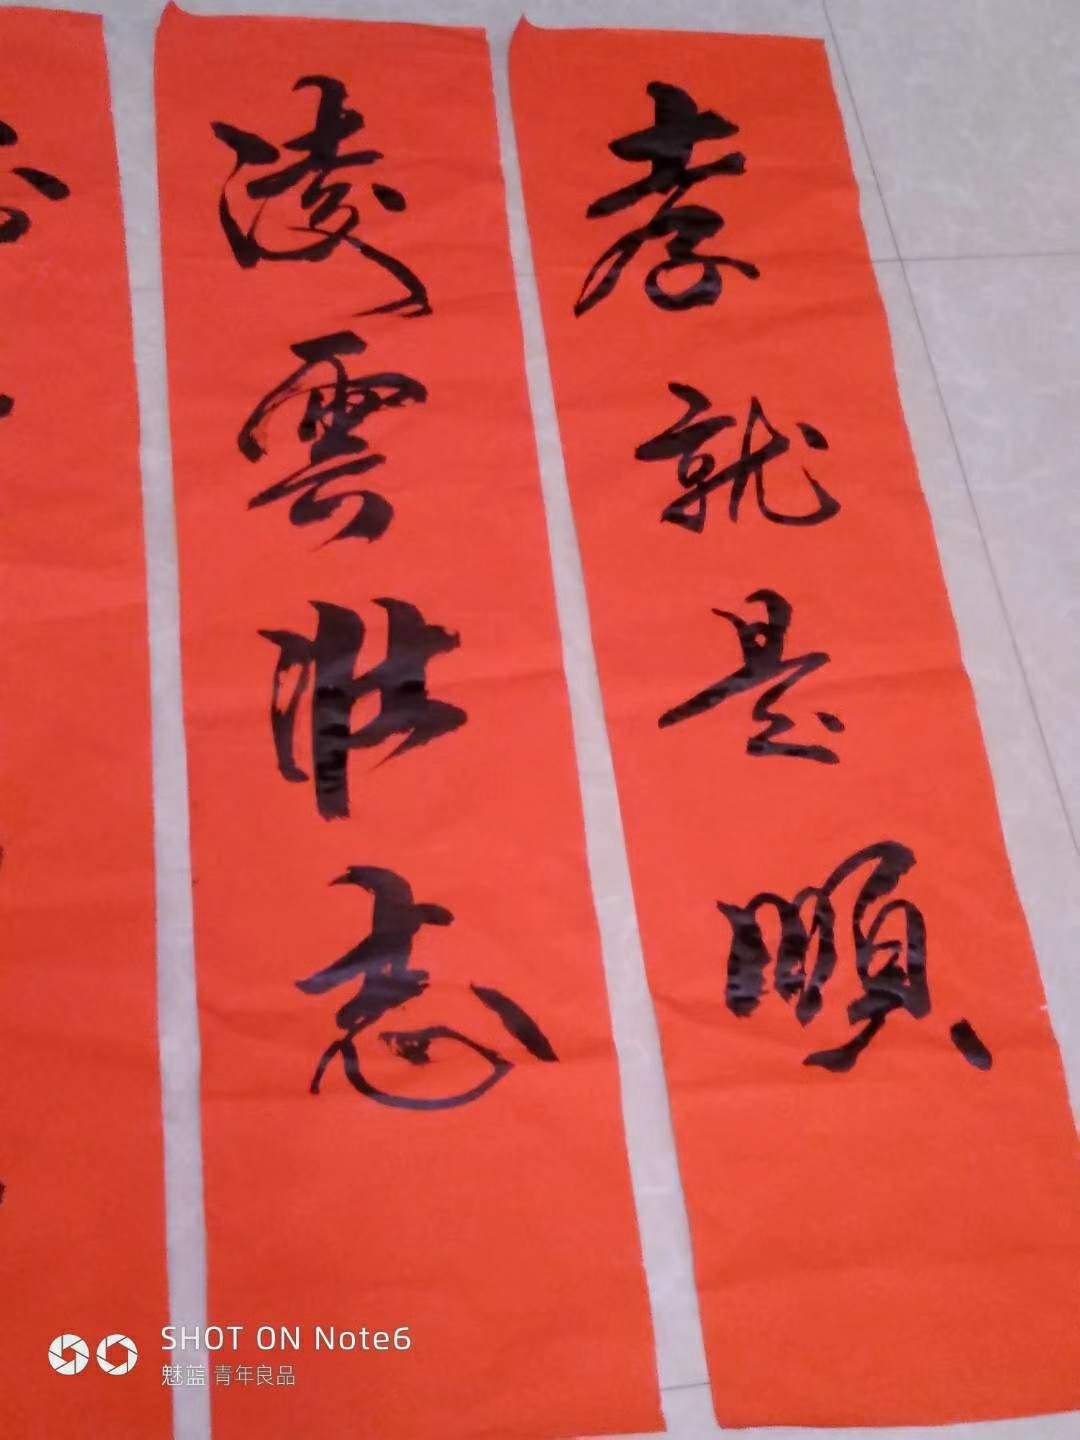 孝就是順
凌雲壯志
SHOT ON Note6
魅蓝 青年良品